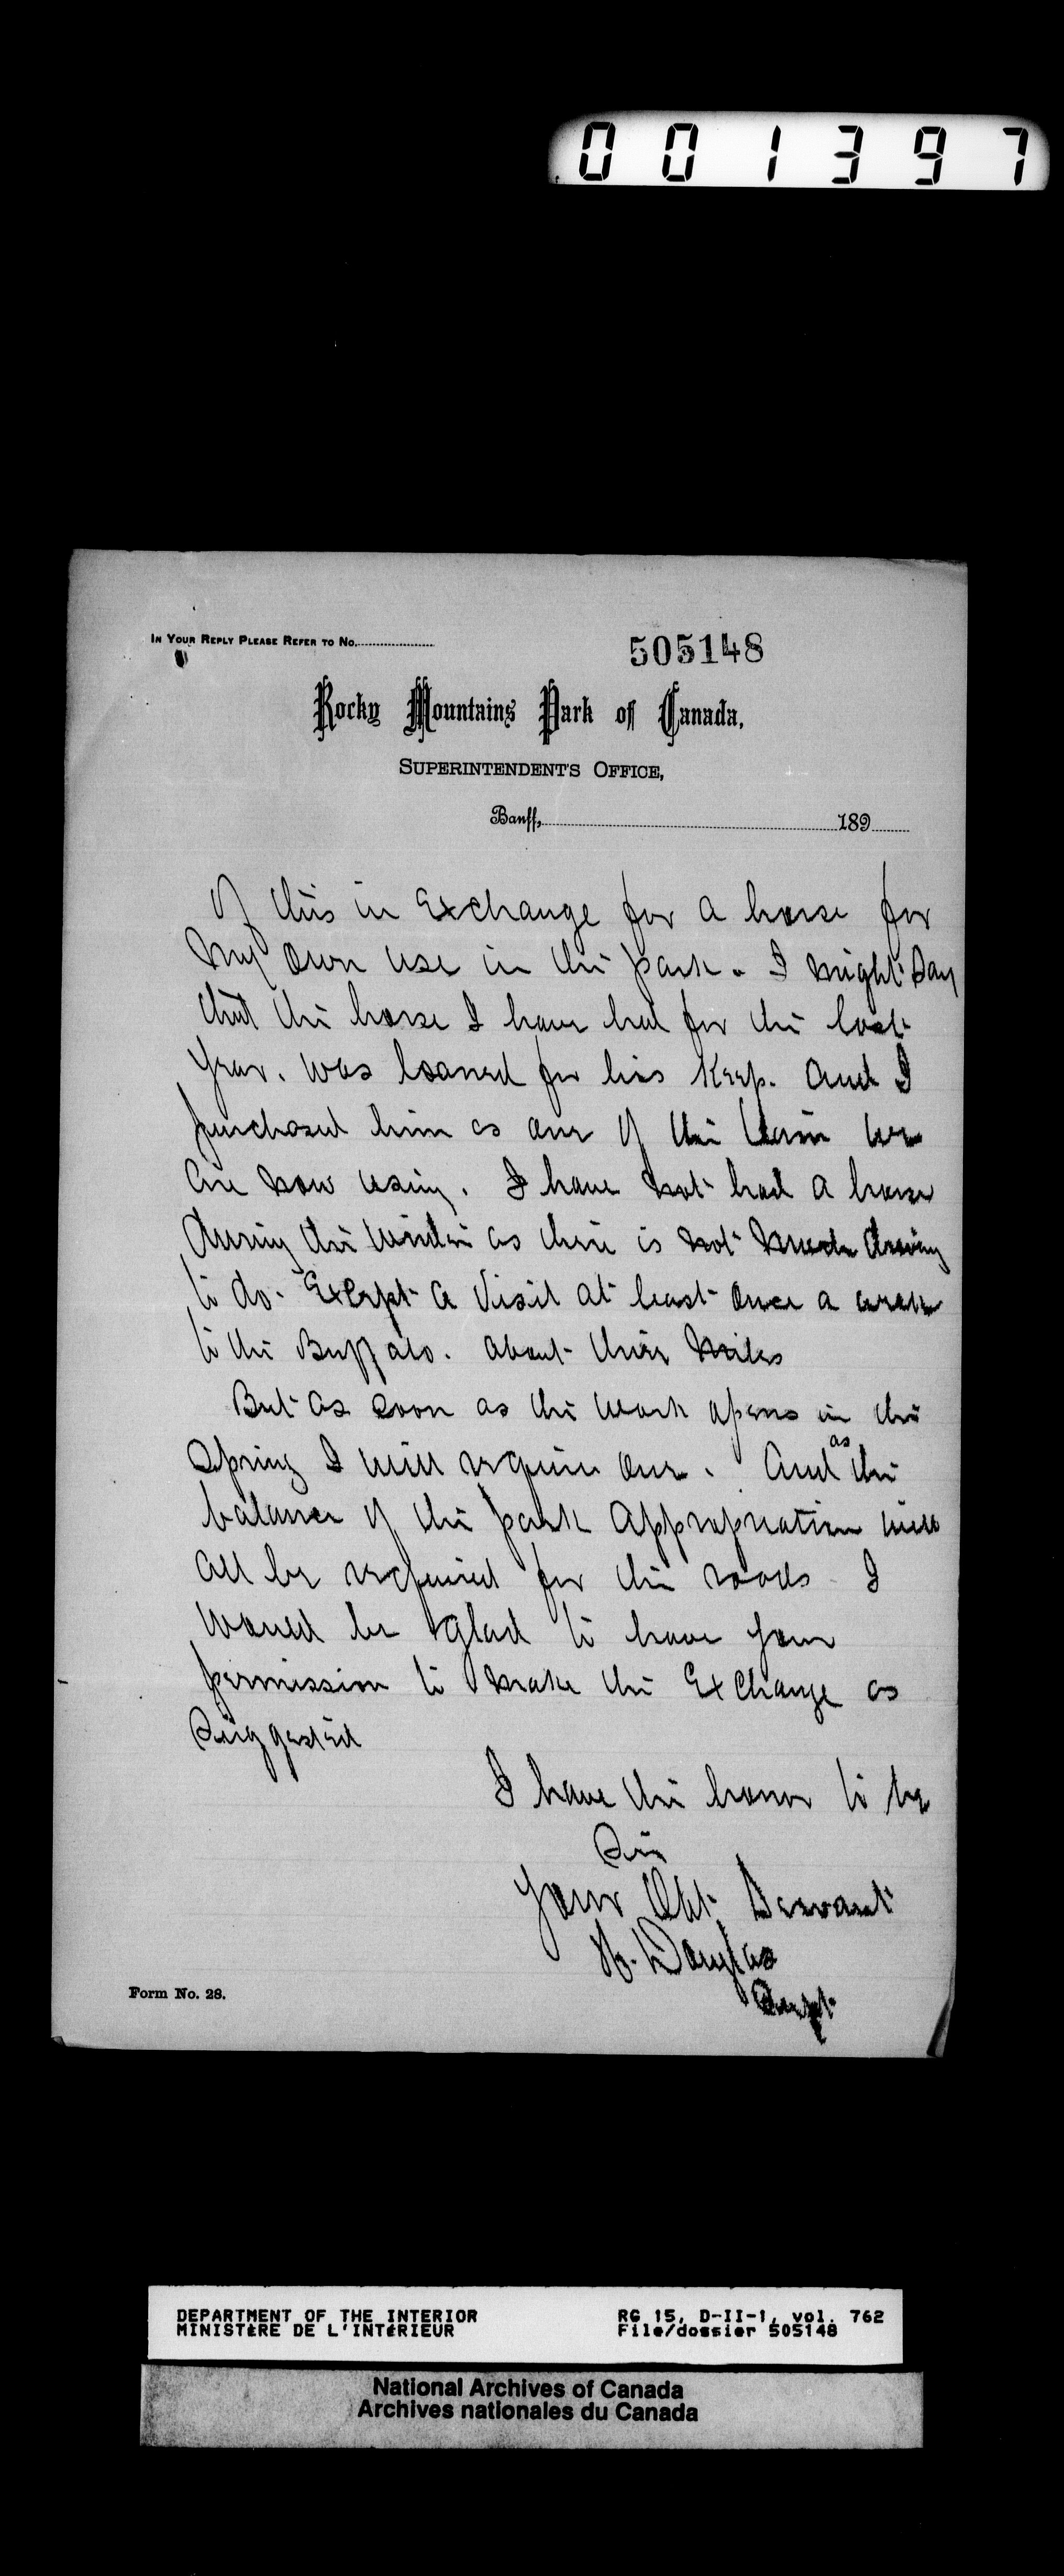 001397
In Your Reply Please Refer to No.
505148
Rocky Mountains Park of Canada,
Superintendent's Office,
Banff, 189
of this in Exchange for a horse for
my own use in the park. I might Say
that the horse I have had for the last
Year. was loaned for his Keep. And I
purchased him as one of the team we
are now using. I have not had a horse
during the winter as there is not much driving
to do. Except a Visit at least once a week
to the Buffalo. about three miles
But as soon as the work opens in the
Spring I will require one. And as the
balance of the park Appropriation will
all be required for the roads I
would be glad to have your
permission to make the Exchange as
Suggested
I have the honor to be
Sir
Your Obt Servant
H. Douglas
Supt
Form No. 28.
DEPARTMENT OF THE INTERIOR RG 15, D-II-1, vol. 762
MINISTÈRE DE L'INTÉRIEUR File/dossier 505148
National Archives of Canada
Archives nationales du Canada